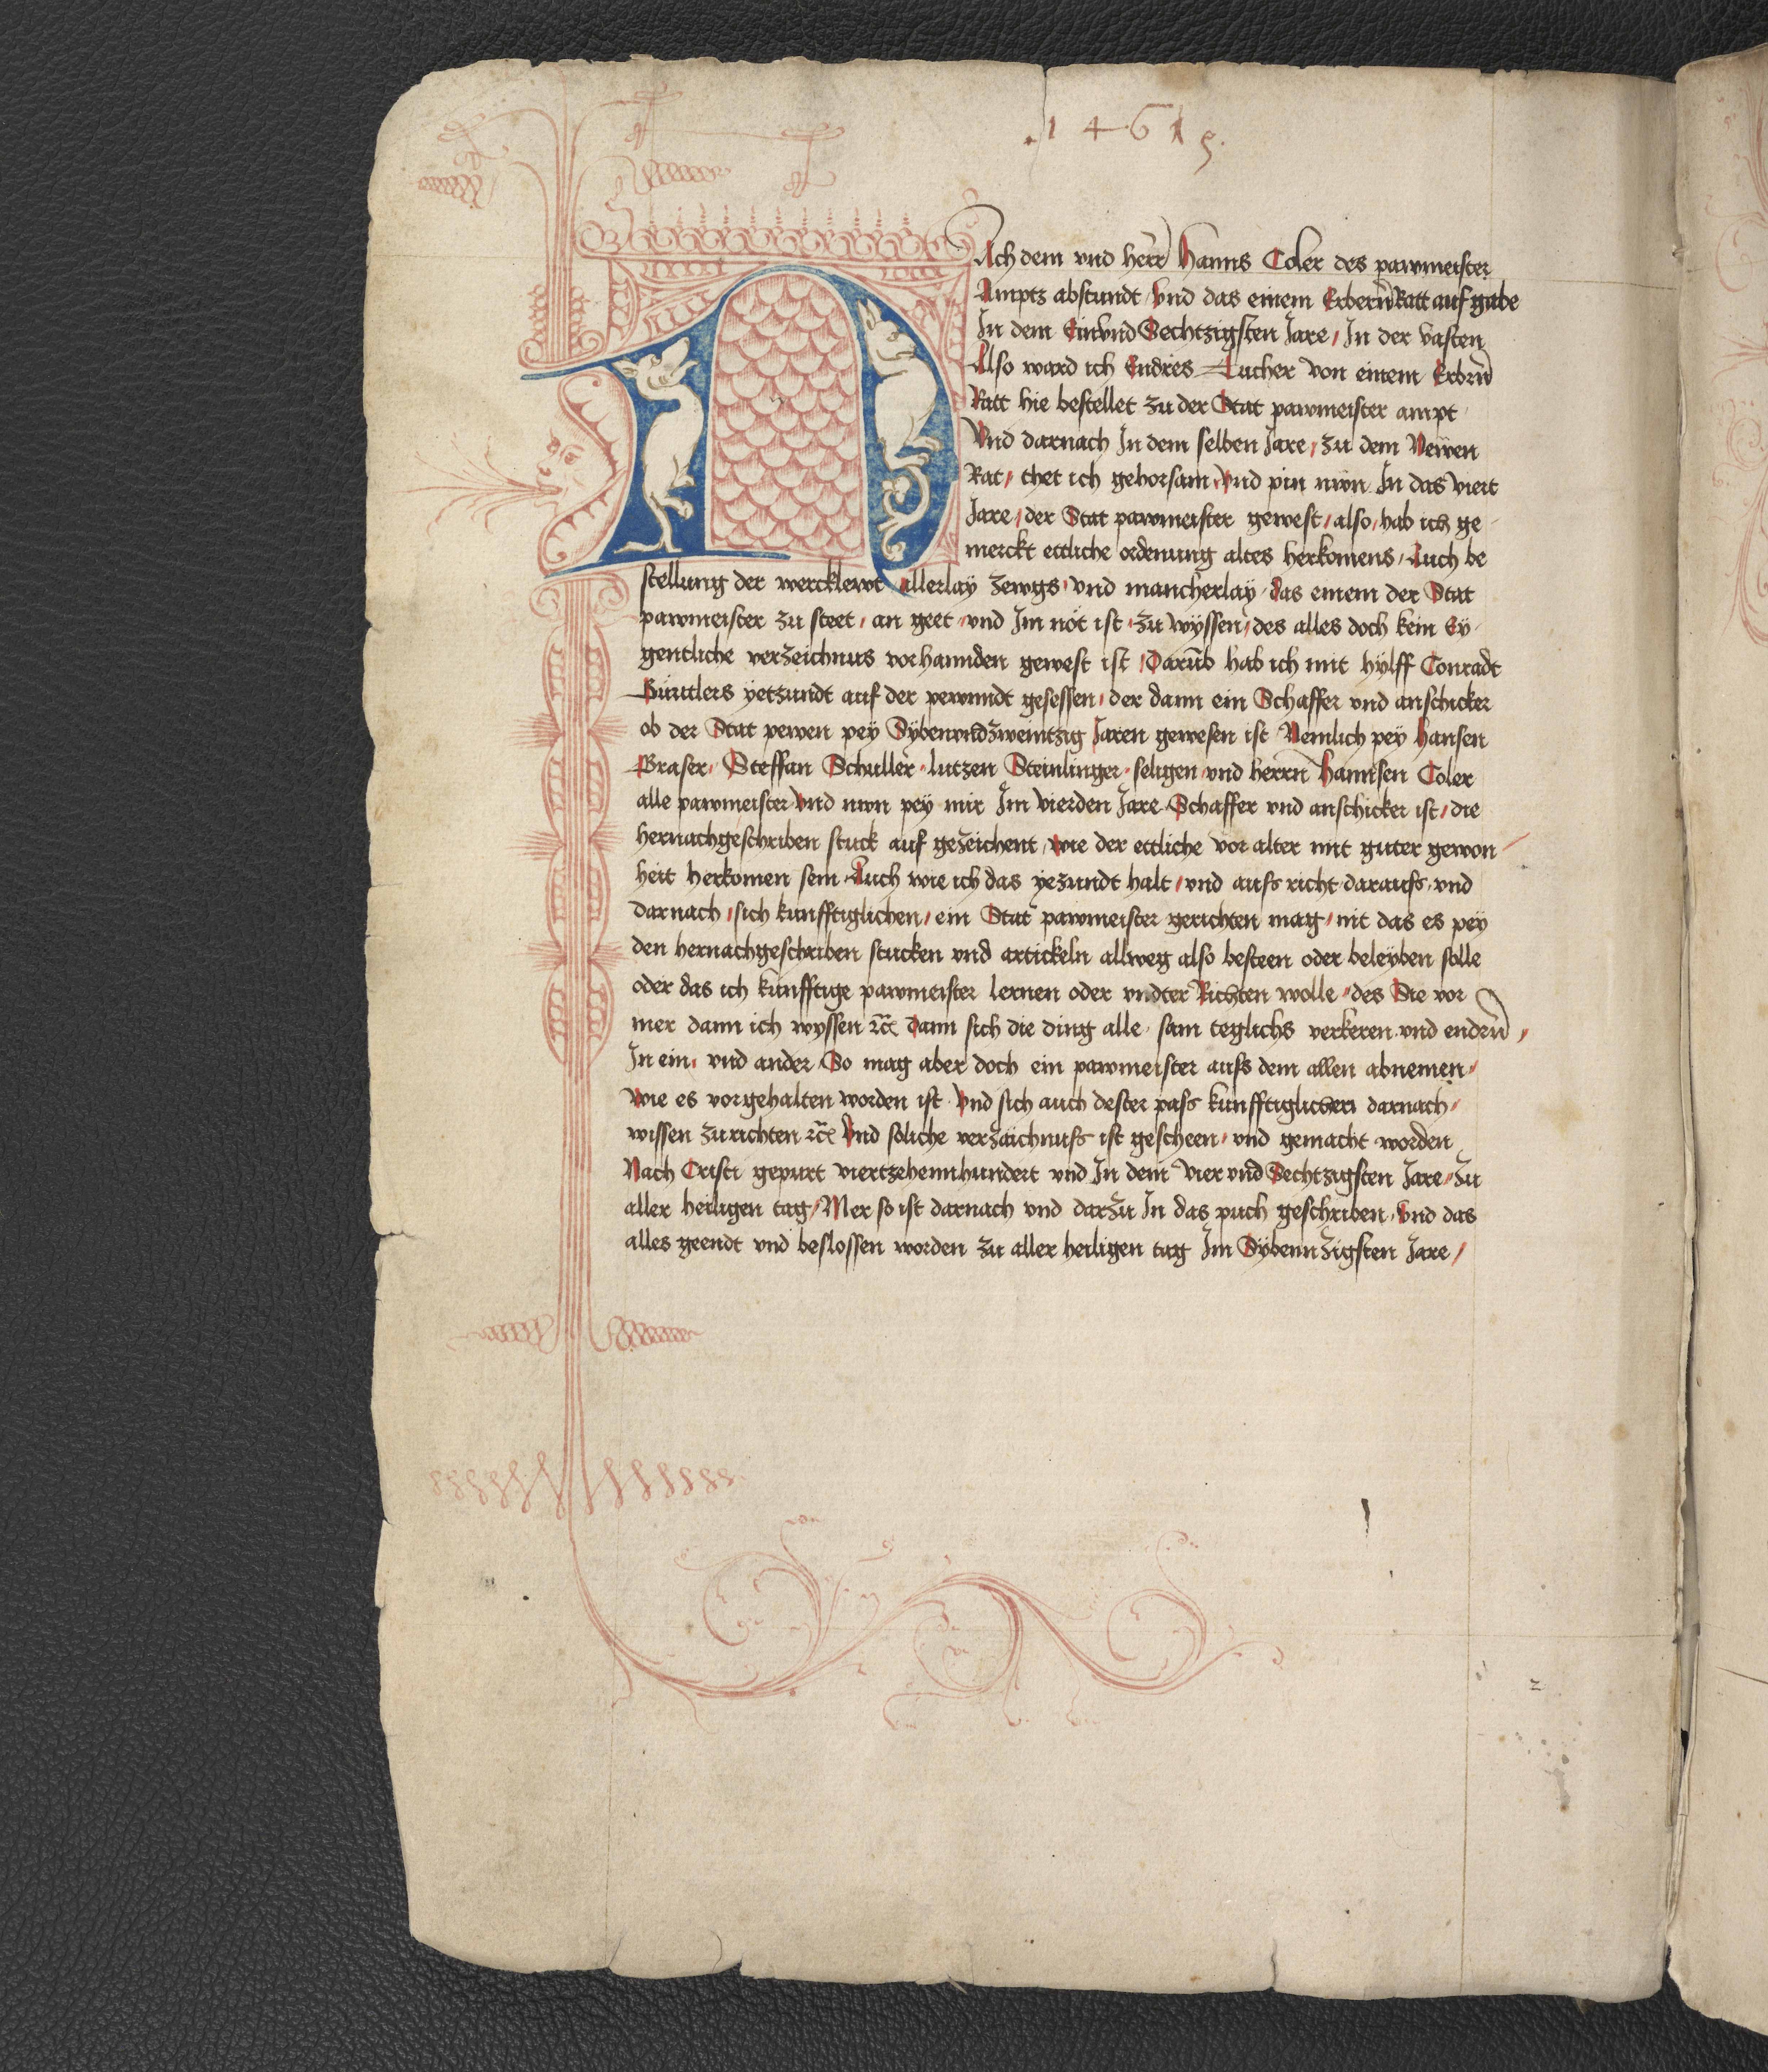 .1461 5.
NAch dem vnd herr Hanns Coler des pawmeister
Amptz abstundt / Vnd das einem Erbern̄ Ratt auf gabe
In dem EinvndSechtzigsten Jare / In der vasten
Also ward ich Endres Tucher von einem Erbrn̄
Ratt hie bestellet zu der Stat pawmeister ampt
Vnd darnach In dem selben Jare / zu dem Newen
Rat / thet ich gehorsam / Vnd pin nwn In das viert
Jare / der Stat pawmeister gewest / also / hab ich ge
merckt ettliche ordenung altes herkomens / Auch be
stellung der wercklewt Allerlaÿ zewgs / vnd mancherlaÿ / das einem der Stat
pawmeister zu steet / an geet / vnd Im nöt ist / zu wÿssen / des alles doch kein Eÿ
gentliche verzeichnus vorhannden gewest ist / Darūb hab ich mit hÿlff Conradt
Gürtlers ÿetzundt auf der pewnndt gesessen / der dann ein Schaffer vnd anschicker
ob der Stat pewen peÿ Sÿbenvndzweintzig Jaren gewesen ist Nemlich peÿ Hansen
Graser / Steffan Schuller / lutzen Steinlinger / seligen / vnd herrn Hannsen Coler
alle pawmeister Vnd nwn peÿ mir Im vierden Jare Schaffer vnd anschicker ist / die
hernachgeschriben stuck auf gezeichent / wie der ettliche vor alter mit guter gewon
heit herkomen sein Auch wie ich das yezundt halt / vnd auſs richt / darauſs / vnd
darnach / sich kunfftiglichen / ein Stat pawmeister gerichten mag / nit das es peÿ
den hernachgeschriben stucken vnd artickeln allweg also besteen oder beleÿben solle
oder das ich künfftige pawmeister lernen oder vndter Richten wolle / des Sie vor
mer dann ich wyssen ꝛc̄ Dann sich die ding alle / sam teglichs verkeren vnd endrn̄ /
In ein / vnd ander / So mag aber doch ein pawmeister auſs dem allen abnemen /
Wie es vorgehalten worden ist / Vnd sich auch dester paſs kunfftiglichen darnach /
wissen zurichten ꝛc̄ Vnd soliche verzaichnuſs ist gescheen / vnd gemacht worden
Nach Cristi gepurt viertzehennhundert vnd In dem vier vnd Sechtzigsten Jare / zu
aller heiligen tag / Mer so ist darnach vnd darzu In das puch geschriben / Vnd das
alles geendt vnd beslossen worden zu aller heiligen tag Im Sÿbennzigsten Jare /
2